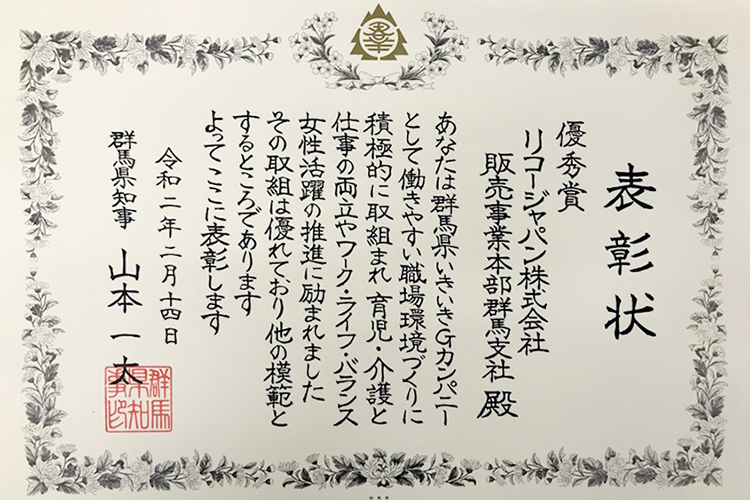 表彰状
優秀賞
リコージャパン株式会社
販売事業本部群馬支社 殿
あなたは群馬県いきいきGカンパニー
として働きやすい職場環境づくりに
積極的に取組まれ 育児・介護と
仕事の両立やワーク・ライフ・バランス
女性活躍の推進に励まれました
その取組は優れており他の模範と
するところであります
よってここに表彰します
令和二年二月十四日
群馬県知事 山本一太
群馬県知事印